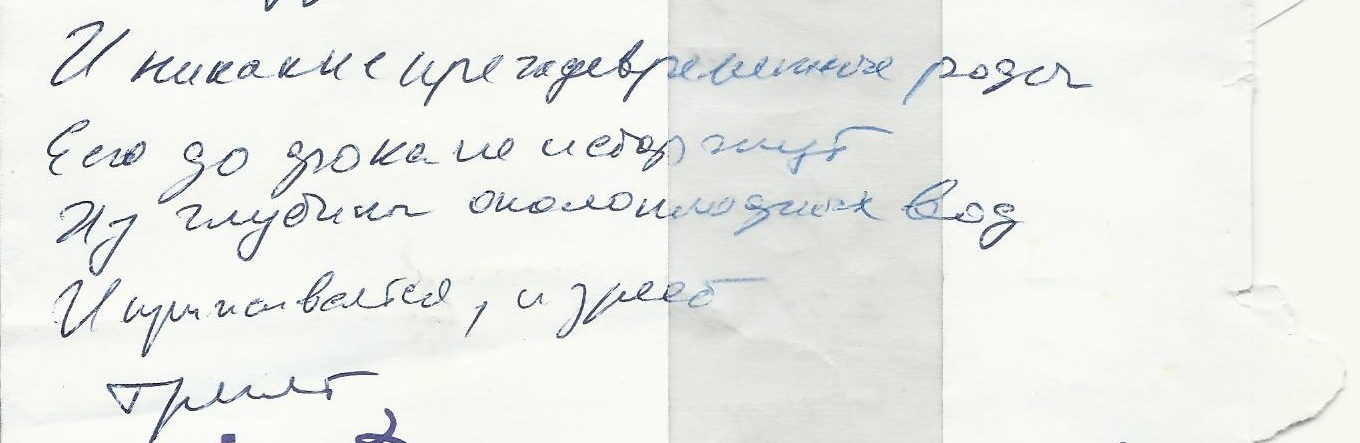 И никакие преждевременные роды
Его до срока не исторгнут
Из глубины околоплодных вод
И причаивается, и зреет